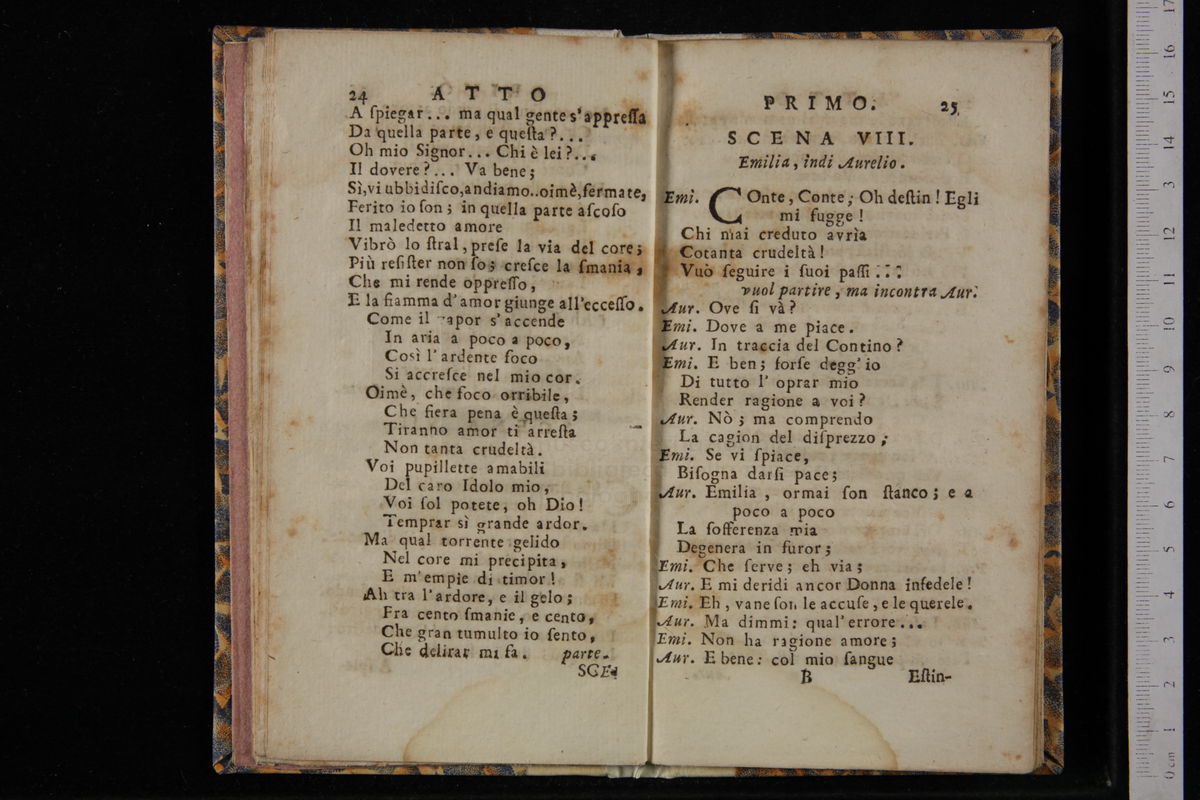 24 ATTO
A ſpiegar... ma qual gente s'appreſſa
Da quella parte, e queſta?...
Oh mio Signor... Chi è lei?...
Il dovere?... Va bene;
Sì,vi ubbidiſco,andiamo..oimè,fermate,
Ferito io ſon; in quella parte aſcoſo
Il maledetto amore
Vibrò lo ſtral, preſe la via del core;
Più reſiſter non ſo; creſce la ſmania,
Che mi rende oppreſſo,
E la fiamma d'amor giunge all'ecceſſo.
Come il vapor s'accende
In aria a poco a poco,
Così l'ardente foco
Si accreſce nel mio cor.
Oimè, che foco orribile,
Che fiera pena è queſta;
Tiranno amor ti arreſta
Non tanta crudeltà.
Voi pupillette amabili
Del caro Idolo mio,
Voi ſol potete, oh Dio!
Temprar sì grande ardor.
Ma qual torrente gelido
Nel core mi precipita,
E m'empie di timor!
Ah tra l'ardore, e il gelo;
Fra cento ſmanie, e cento,
Che gran tumulto io ſento,
Che delirar mi fa. parte.
SCE-
PRIMO. 25
SCENA VIII.
Emilia, indi Aurelio.
Emi. COnte, Conte; Oh deſtin! Egli
mi fugge!
Chi mai creduto avrìa
Cotanta crudeltà!
Vuò ſeguire i ſuoi paſſi...
vuol partire, ma incontra Aur.
Aur. Ove ſi và?
Emi. Dove a me piace.
Aur. In traccia del Contino?
Emi. E ben; forſe degg'io
Di tutto l'oprar mio
Render ragione a voi?
Aur. Nò; ma comprendo
La cagion del diſprezzo;
Emi. Se vi ſpiace,
Biſogna darſi pace;
Aur. Emilia, ormai ſon ſtanco; e a
poco a poco
La ſofferenza mia
Degenera in furor;
Emi. Che ſerve; eh via;
Aur. E mi deridi ancor Donna infedele!
Emi. Eh, vane ſon le accuſe, e le querele.
Aur. Ma dimmi: qual'errore...
Emi. Non ha ragione amore;
Aur. E bene: col mio ſangue
B Eſtin-
0 cm 1 2 3 4 5 6 7 8 9 10 11 12 13 14 15 16 17